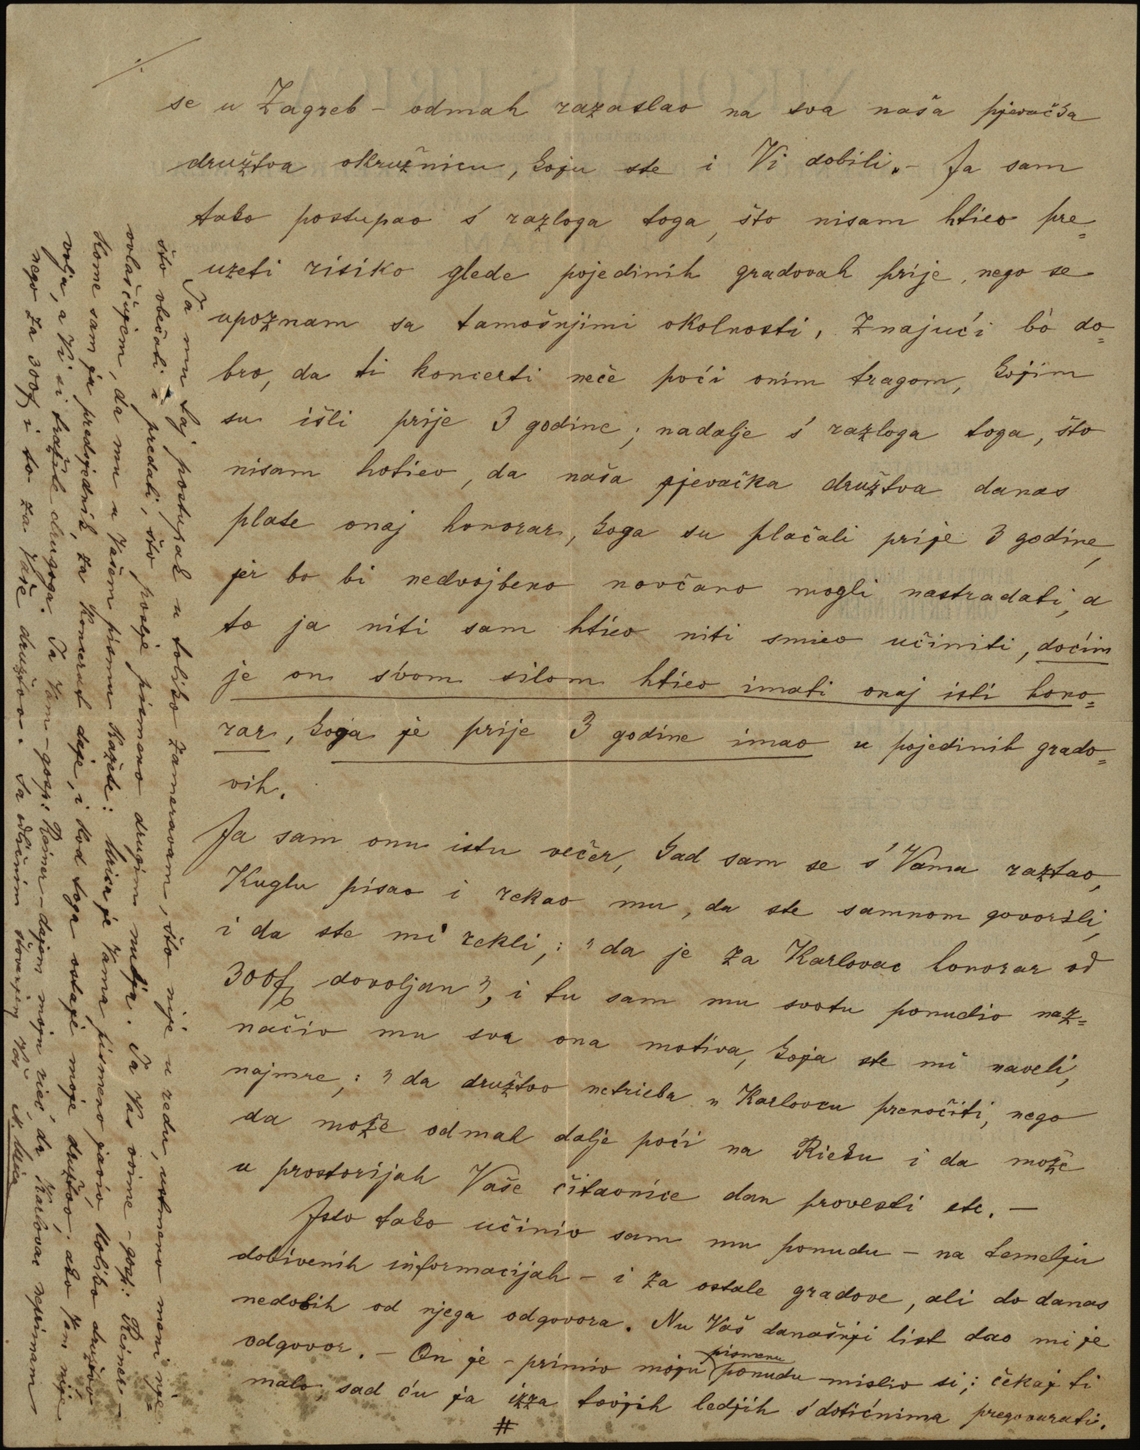 ·/.
se u Zagreb – odmah razaslao na sva naša pjevačka
društva okružnicu, koju ste i Vi dobili. – Ja sam
tako postupao s' razloga toga, što nisam htieo pre=
uzeti risiko glede pojedinih gradovah prije, nego se
upoznam sa tamošnjimi okolnosti, znajući bo do=
bro, da ti koncerti neće poći onim tragom, kojim
su išli prije 3 godine; nadalje s' razloga toga, što
nisam hotieo, da naša pjevačka društva danas
plate onaj honorar, koga su plaćali prije 3 godine,
jer bo bi nedvojbeno novčano mogli nastradati, a
to ja niti sam htieo niti smieo učiniti, dočim
je on svom silom htieo imati onaj isti hono=
rar, koga je prije 3 godine imao u pojedinih grado=
vih.
Ja sam onu istu večer, kad sam se s' Vama raztao,
Kuglu pisao i rekao mu, da ste samnom govorili,
i da ste mi rekli,: "da je za Karlovac honorar od
300f dovoljan", i tu sam mu svotu ponudio naz=
načiv mu sva ona motiva, koja ste mi naveli,
najmre,: "da društvo netrieba u Karlovcu prenoćiti, nego
da može odmah dalje poći na Rieku i da može
u prostorijah Vaše čitaonice dan provesti etc. –
Isto tako učinio sam mu ponudu – na temelju
dobivenih informacijah – i za ostale gradove, ali do danas
nedobih od njega odgovora. Nu Vaš današnji list dao mi je
odgovor. – On je – primiv moju pismenu ponudu mislio si,: čekaj ti
malo, sad ću ja izza tvojih ledjih s' dotičnima pregovarati.
#
Ja mu taj postupak u toliko zameravam, što nije u redu, ustmeno meni nje=
što obećati i predati, što poslje pismeno drugim nudja. Ja Vas ovime – gosp: Reiner –
ovlašćujem, da mu u Vašem pismu kažete: Mica je Vama pismeno javio, koliko društvo
kome sam ja predsjednik, za koncerat daje, i kod toga ostaje moje društvo, ako Vam nije
volja, a Vi si tražite drugoga. Ja Vam – gosp: Reiner – dajem moju rieč, da Karlovac neprimam
nego za 300f i to za Vaše društvo. Sa odličnim štovanjem Vaš